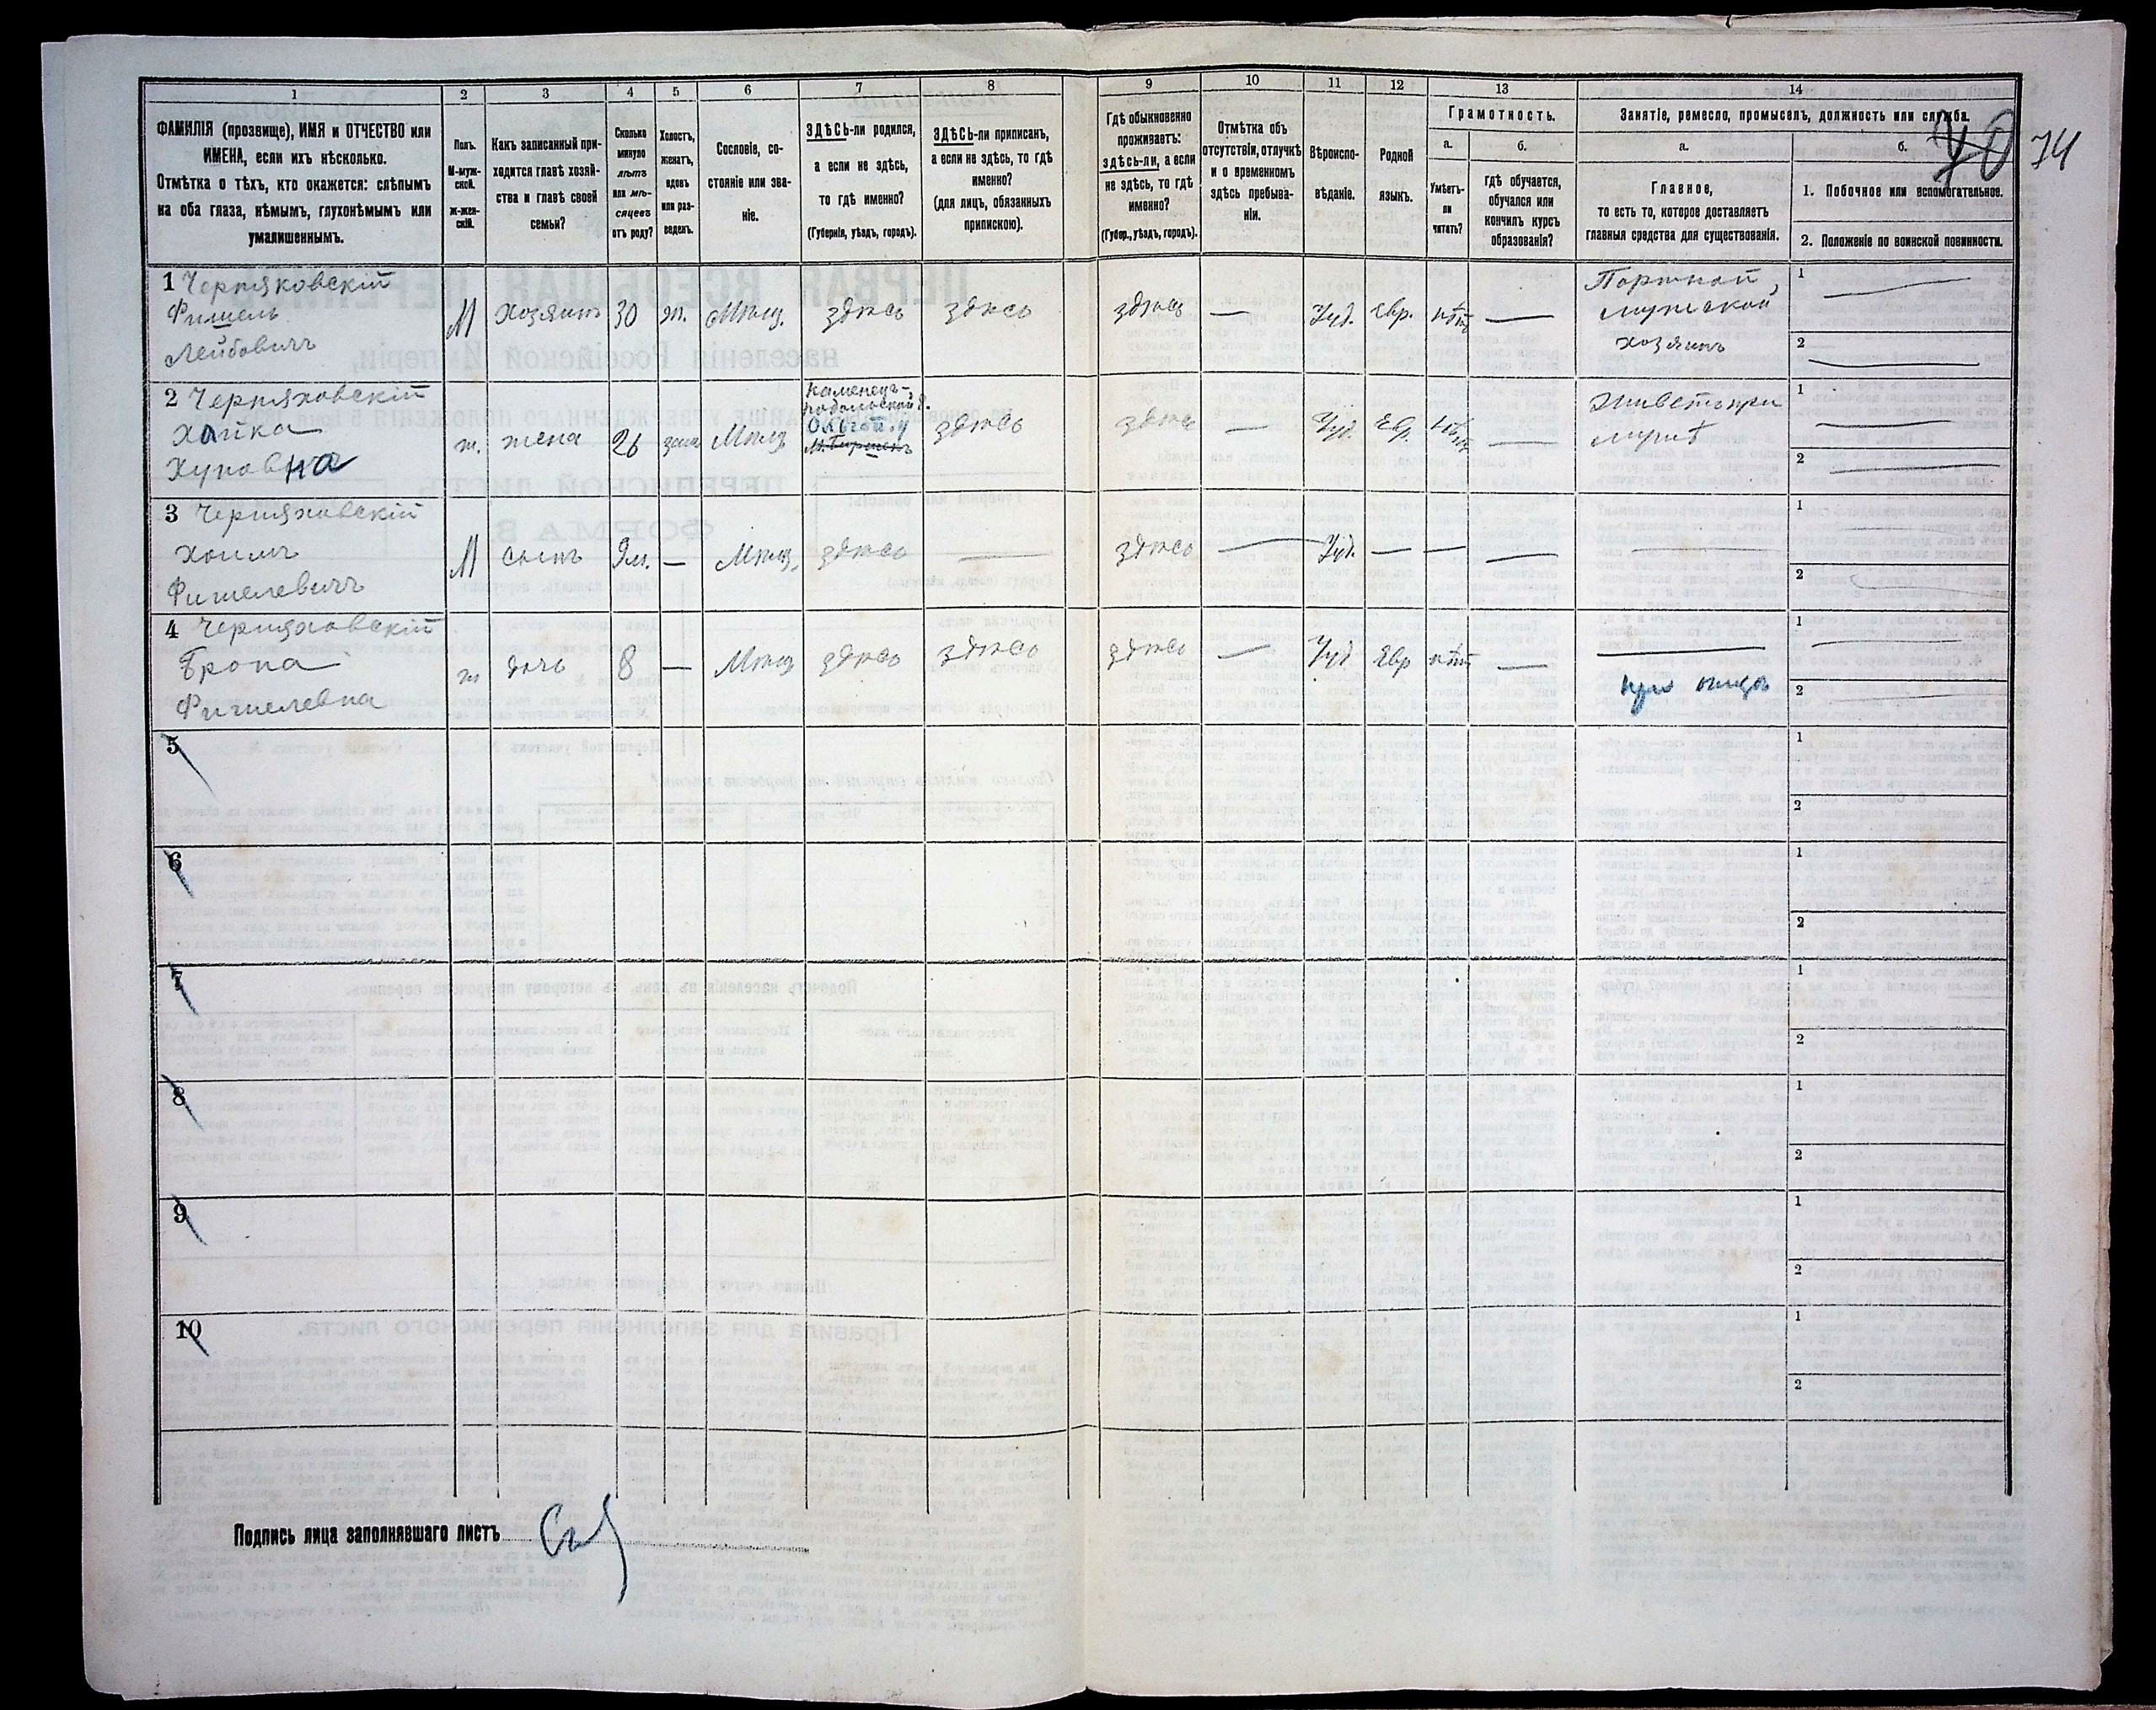 1
2
3
4
5
6
7
8
9
10
11
12
13
14
ФАМИЛІЯ (прозвище), ИМЯ и ОТЧЕСТВО или
ИМЕНА, если ихъ нѣсколько.
Отмѣтка о тѣхъ, кто окажется: слѣпымъ
на оба глаза, нѣмымъ, глухонѣмымъ или
умалишеннымъ.
Полъ.
М-муж-
ской.
ж-жен-
скій.
Какъ записанный при-
ходится главѣ хозяй-
ства и главѣ своей
семьи?
Сколько
минуло
лѣтъ
или мѣ-
сяцевъ
отъ роду?
Холостъ,
женатъ,
вдовъ
или раз-
веденъ.
Сословіе, со-
стояніе или зва-
ніе.
ЗДѢСЬ-ли родился,
а если не здѣсь,
то гдѣ именно?
(Губернія, уѣздъ, городъ).
ЗДѢСЬ-ли приписанъ,
а если не здѣсь, то гдѣ
именно?
(для лицъ, обязанныхъ
припискою).
Гдѣ обыкновенно
проживаетъ:
здѣсь-ли, а если
не здѣсь, то гдѣ
именно?
(Губер., уѣздъ, городъ).
Отмѣтка объ
отсутствіи, отлучкѣ
и о временномъ
здѣсь пребыва-
ніи.
Вѣроиспо-
вѣданіе.
Родной
языкъ.
Грамотность.
а.
Умѣетъ-
ли
читать?
б.
Гдѣ обучается,
обучался или
кончилъ курсъ
образованія?
Занятіе, ремесло, промыселъ, должность или служба.
а.
Главное,
то есть то, которое доставляетъ
главныя средства для существованія.
б.
1. Побочное или вспомогательное.
2. Положеніе по воинской повинности.
70 74
1 Черняховскій
Фишель
Лейбовичъ
М
хозяинъ
30
жен.
Мѣщ.
здѣсь
здѣсь
здѣсь
—
Іуд.
Евр.
нѣтъ
—
Портной,
мужской
хозяинъ
1
—
2
—
2 Черняховскій
Хайка
ж.
жена
26
зам.
Мѣщ
Каменецъ-
подольской г.
здѣсь
здѣсь
—
Іуд.
Евр.
нѣтъ
—
Живетъ при
мужѣ
1
—
2
—
3 Черняховскій
Хаимъ
Фишелевичъ
М
сынъ
9м.
—
Мѣщ.
здѣсь
—
здѣсь
—
Іуд.
—
—
—
—
1
—
2
—
4 Черняховскій
Броха
Фишелевна
ж
дочь
8
—
Мѣщ
здѣсь
здѣсь
здѣсь
—
Іуд.
Евр
нѣтъ
—
—
при отцѣ
1
—
2
—
5
1
2
6
1
2
7
1
2
8
1
2
9
1
2
10
1
2
Подпись лица заполнявшаго листъ